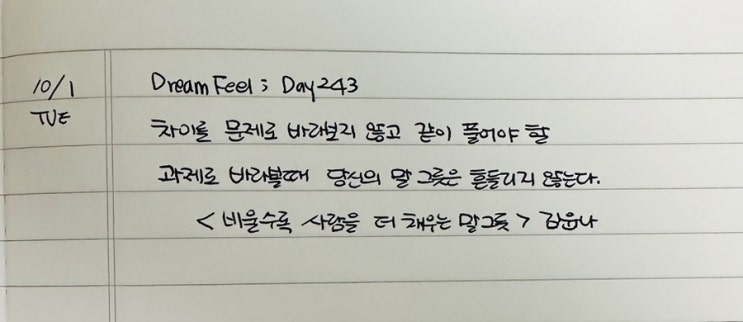 10/1
TUE
Dream Feel ; Day 243
차이를 문제로 바라보지 않고 같이 풀어야 할
과제로 바라볼때 당신의 말 그릇은 흔들리지 않는다.
< 비울수록 사람을 더 채우는 말그릇 > 김윤나